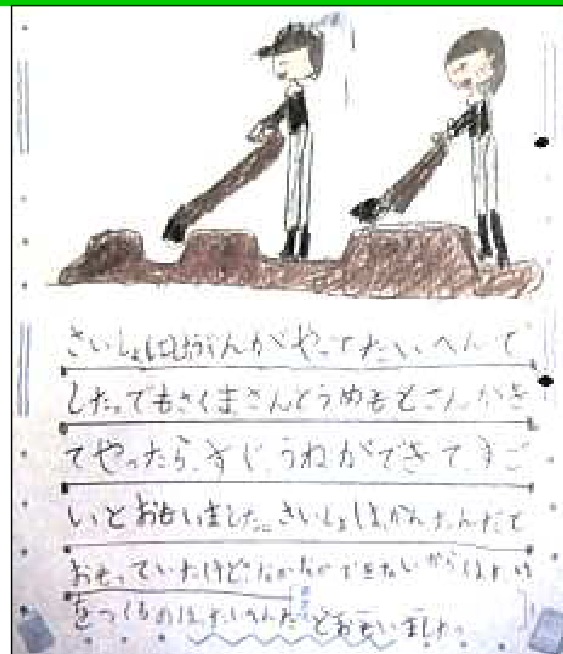 さいしょはじぶんがやってたいへんで
した。でもさくまさんとうめもとさんがき
てやったら、すじ、うねができてすご
いとおもいました。さいしょは、かんたんだと
おもっていたけど、なかなかできないからはたけ
をつくるのは、たいへんだとおもいました。